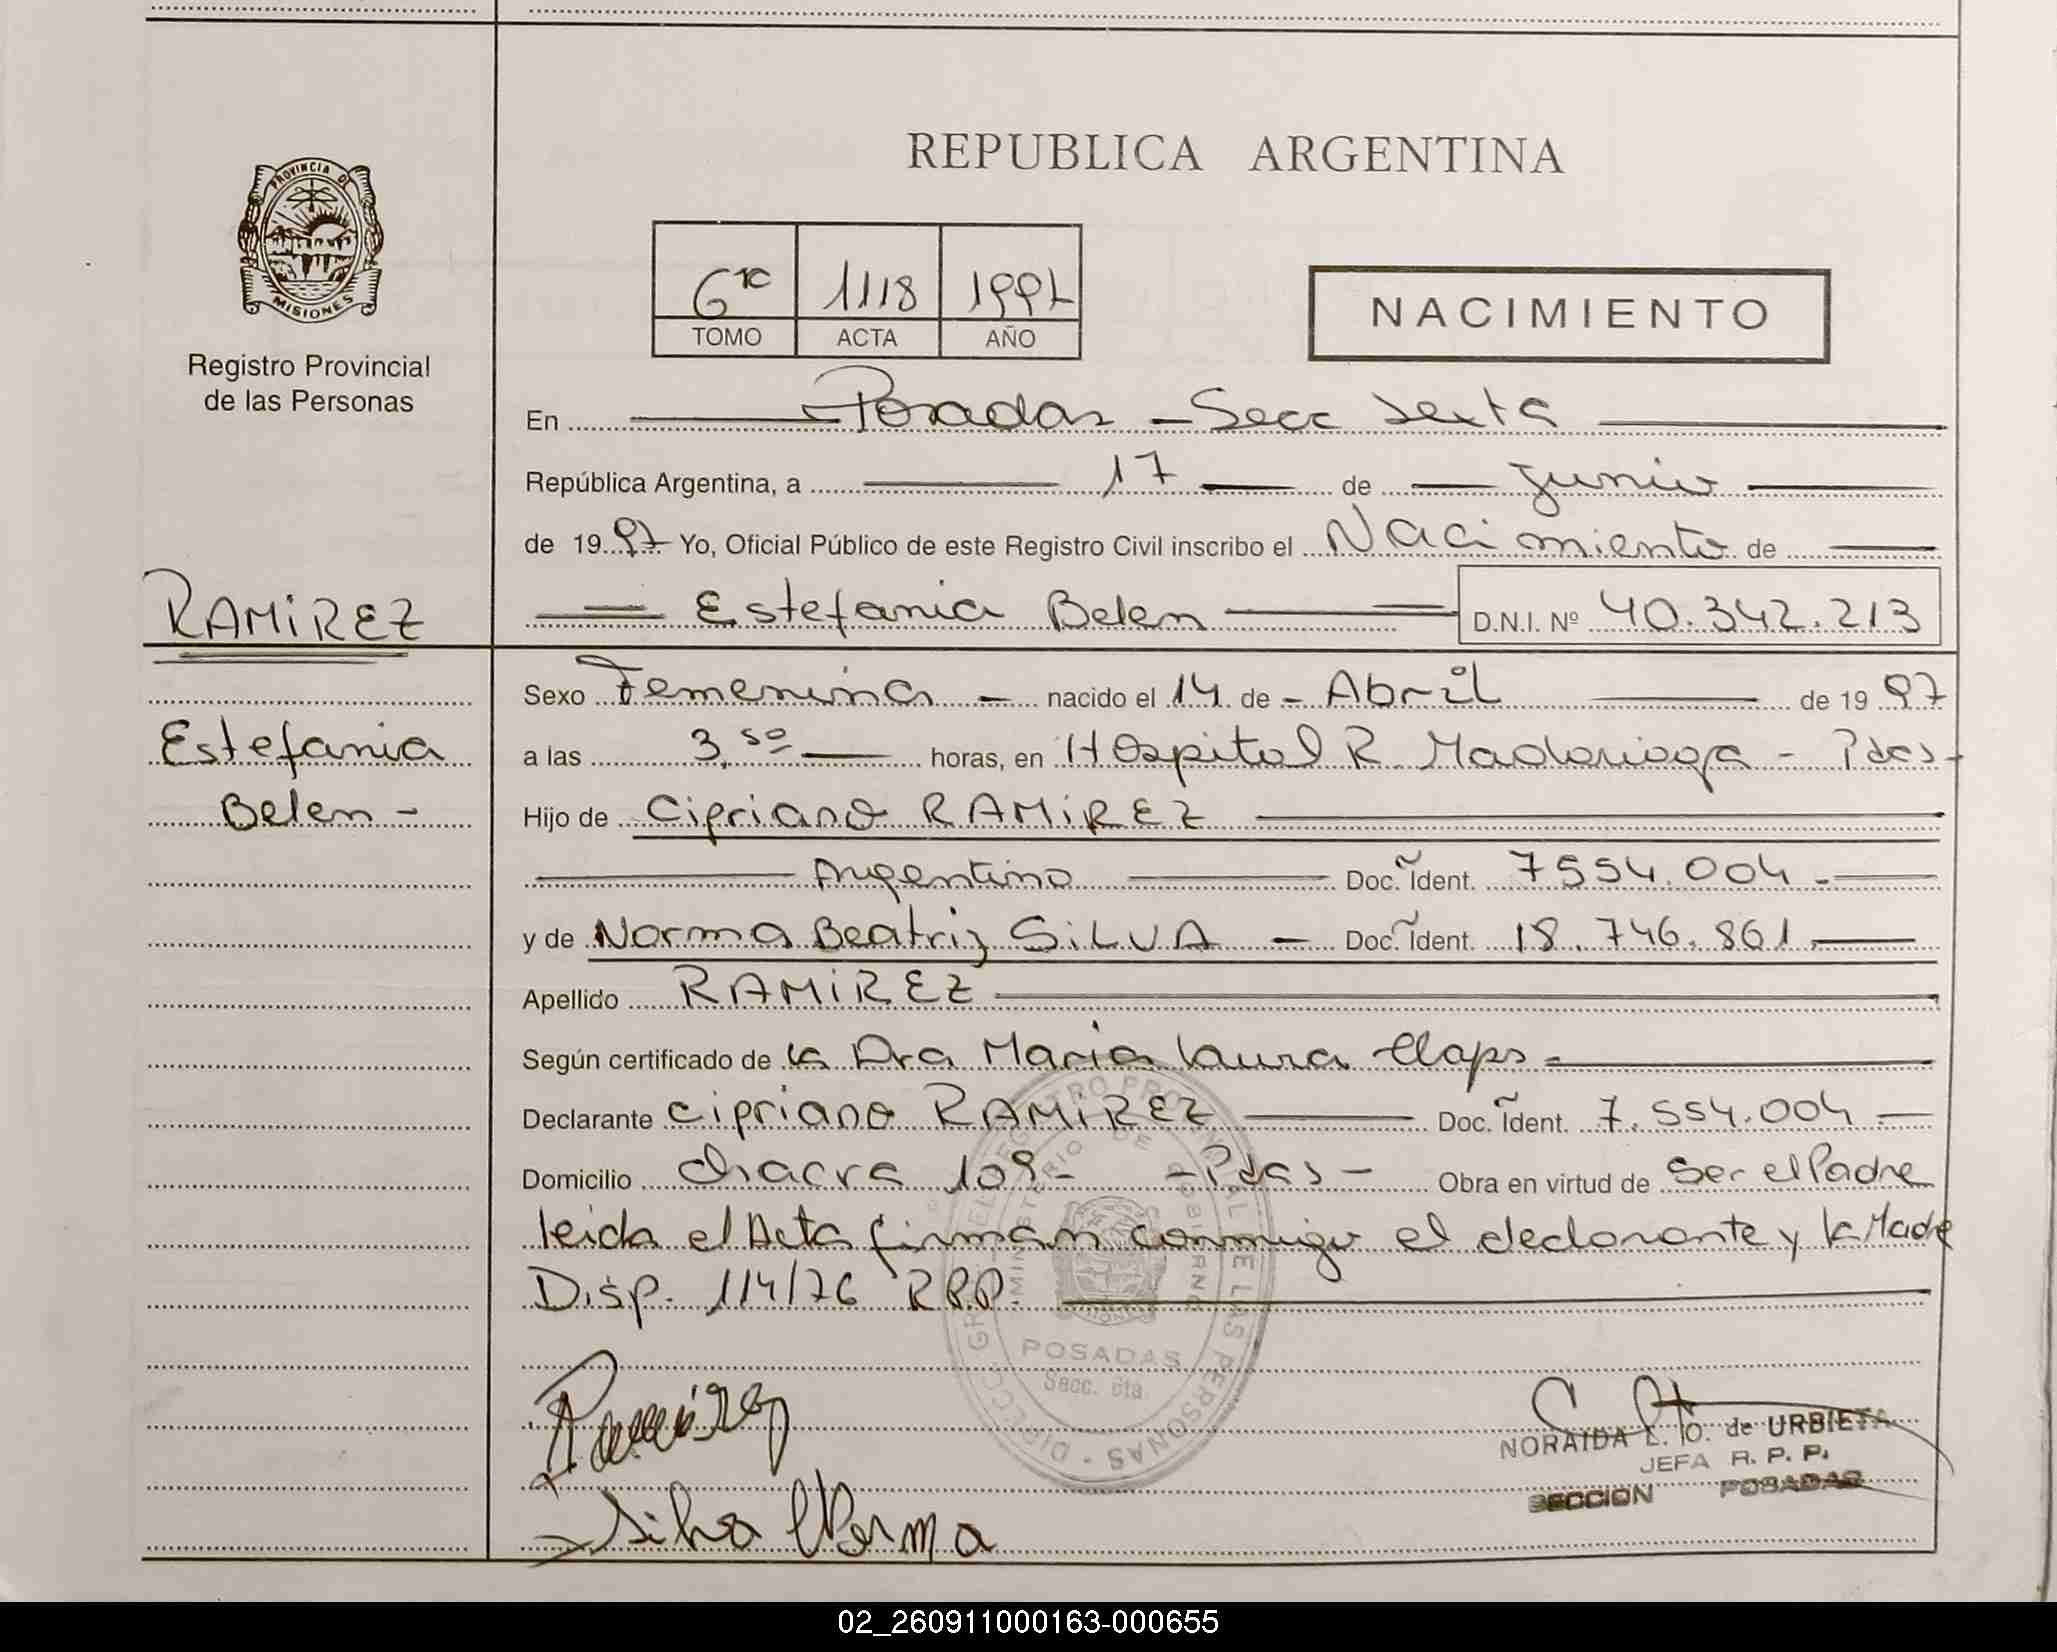 REPUBLICA ARGENTINA
PROVINCIA DE
MISIONES
Registro Provincial
de las Personas
6to 1118 1997
TOMO ACTA AÑO
NACIMIENTO
En Posadas - Secc Sexta
República Argentina, a 17 de Junio
de 1997 Yo, Oficial Público de este Registro Civil inscribo el Nacimiento de
RAMIREZ
Estefania Belen D.N.I. Nº 40.342.213
Estefania
Belen -
Sexo Femenina - nacido el 14 de - Abril de 1997
a las 3,50 horas, en Hospital R. Madariaga - Pdas -
Hijo de Cipriano RAMIREZ
Argentino Doc. Ident. 7554.004 -
y de Norma Beatriz SILVA - Doc. Ident. 18.746.861
Apellido RAMIREZ
Según certificado de la Dra Maria Laura
Declarante Cipriano RAMIREZ Doc. Ident. 7.554.004
Domicilio Chacra 109 - - Pdas - Obra en virtud de Ser el Padre
leida el Acta firman conmigo el declarante y la Madre
Disp. 114/76 RPP.
DIRECC. GRAL. DEL REGISTRO PROVINCIAL DE LAS PERSONAS
MINISTERIO DE GOBIERNO
POSADAS
Secc. 6ta.
Ramirez
Silva Norma
NORAIDA L. O. de URBIETA
JEFA R. P. P.
SECCION POSADAS
02_260911000163-000655